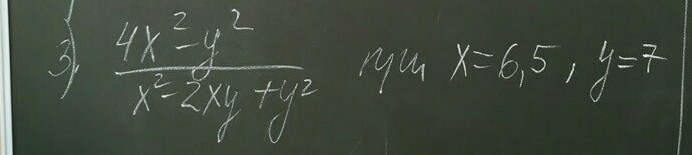 3) 4x²-y²
x²-2xy+y² при x=6,5, y=7